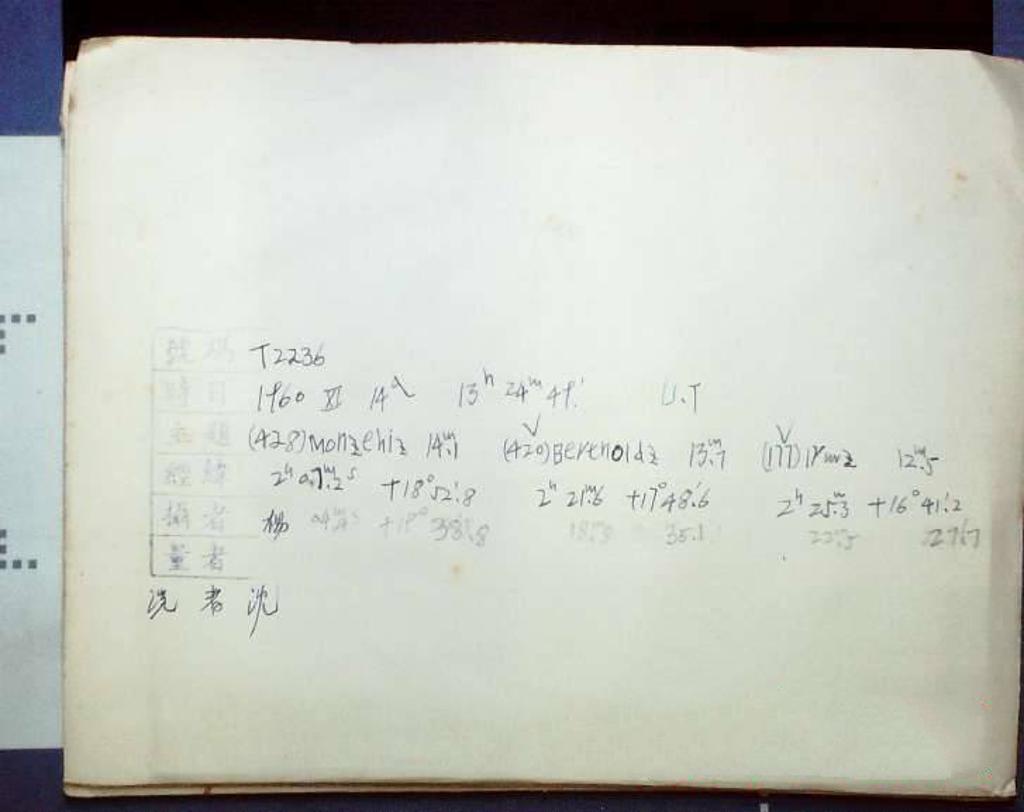 號碼 T2236
時日 1960 XI 14d 13h 24m 49s U.T
主題 (428)Monachia 14m.1 (420)Bertholda 13m.7 (177)Irma 12m.5
經緯 2h 07m.2 +18°52'.8 2h 21m.6 +17°48'.6 2h 25m.3 +16°41'.2
攝者 楊 04m.4 +18° 38'.8 18m.9 35.1 22m.5 27'.7
量者
洗者 沈